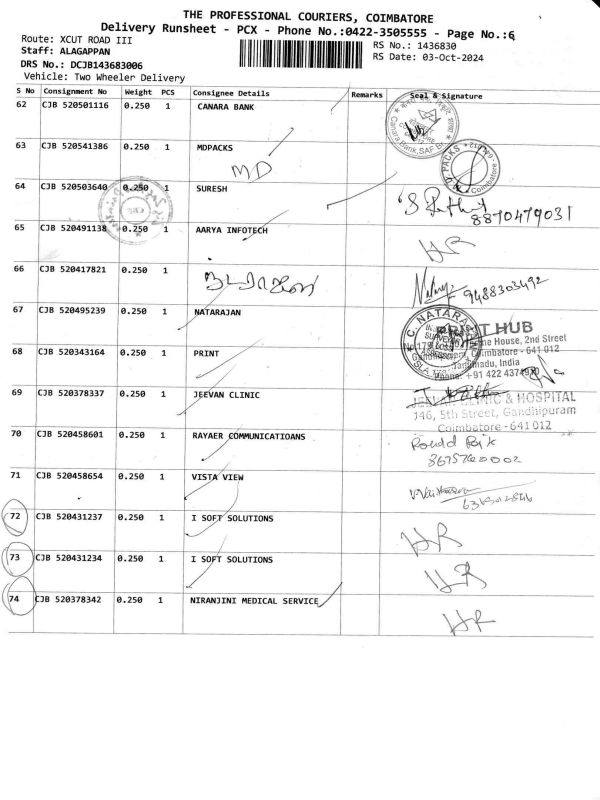 THE PROFESSIONAL COURIERS, COIMBATORE
Delivery Runsheet - PCX - Phone No.:0422-3505555 - Page No.:6
Route: XCUT ROAD III
RS No.: 1436830
Staff: ALAGAPPAN
RS Date: 03-Oct-2024
DRS No.: DCJB143683006
Vehicle: Two Wheeler Delivery
S No Consignment No Weight PCS Consignee Details Remarks Seal & Signature
62 CJB 520501116 0.250 1 CANARA BANK
63 CJB 520541386 0.250 1 MDPACKS
MD
64 CJB 520503640 0.250 1 SURESH
8870479031
65 CJB 520491138 0.250 1 AARYA INFOTECH
HR
66 CJB 520417821 0.250 1
நடராஜன்
9488303492
67 CJB 520495239 0.250 1 NATARAJAN
C. NATARA
PRINT HUB
House, 2nd Street
Coimbatore - 641 012
Tamilnadu, India
68 CJB 520343164 0.250 1 PRINT
Phone: +91 422 4374970
69 CJB 520378337 0.250 1 JEEVAN CLINIC
CLINIC & HOSPITAL
146, 5th Street, Gandhipuram
Coimbatore - 641 012
70 CJB 520458601 0.250 1 RAYAER COMMUNICATIOANS
71 CJB 520458654 0.250 1 VISTA VIEW
72 CJB 520431237 0.250 1 I SOFT SOLUTIONS
HR
73 CJB 520431234 0.250 1 I SOFT SOLUTIONS
HR
74 CJB 520378342 0.250 1 NIRANJINI MEDICAL SERVICE
HR